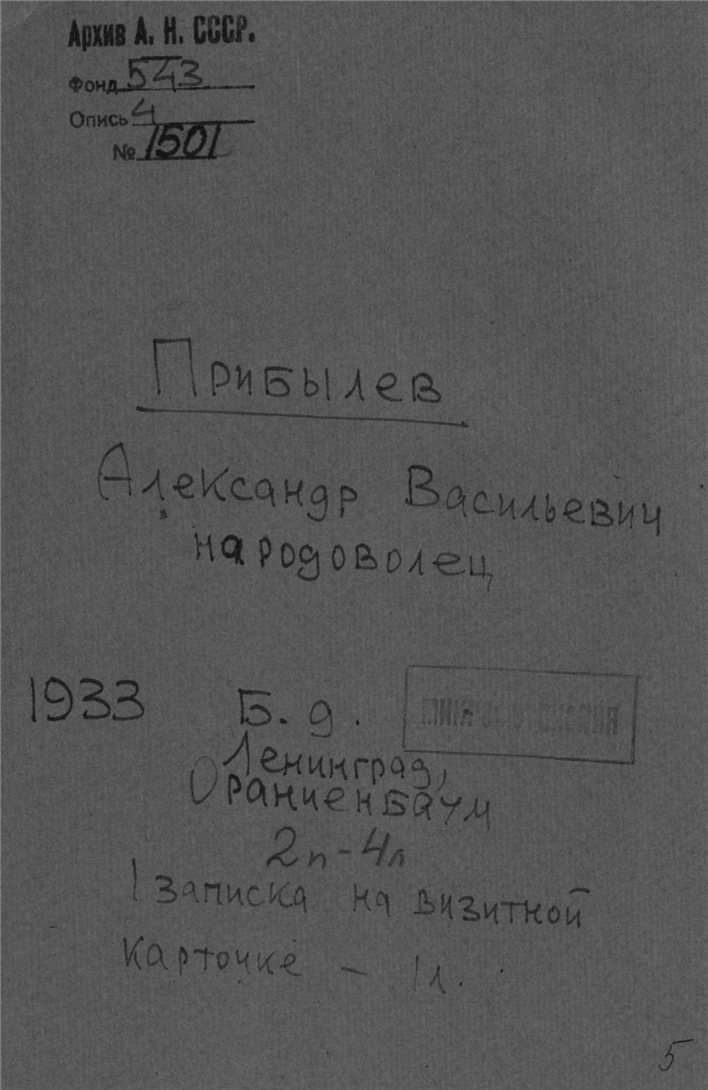 Архив А. Н. СССР.
Фонд 543
Опись 4
№ 1501
Прибылев
Александр Васильевич
народоволец
1933 Б. д.
Ленинград,
Ораниенбаум
2п - 4л
1 записка на визитной
карточке - 1л.
5